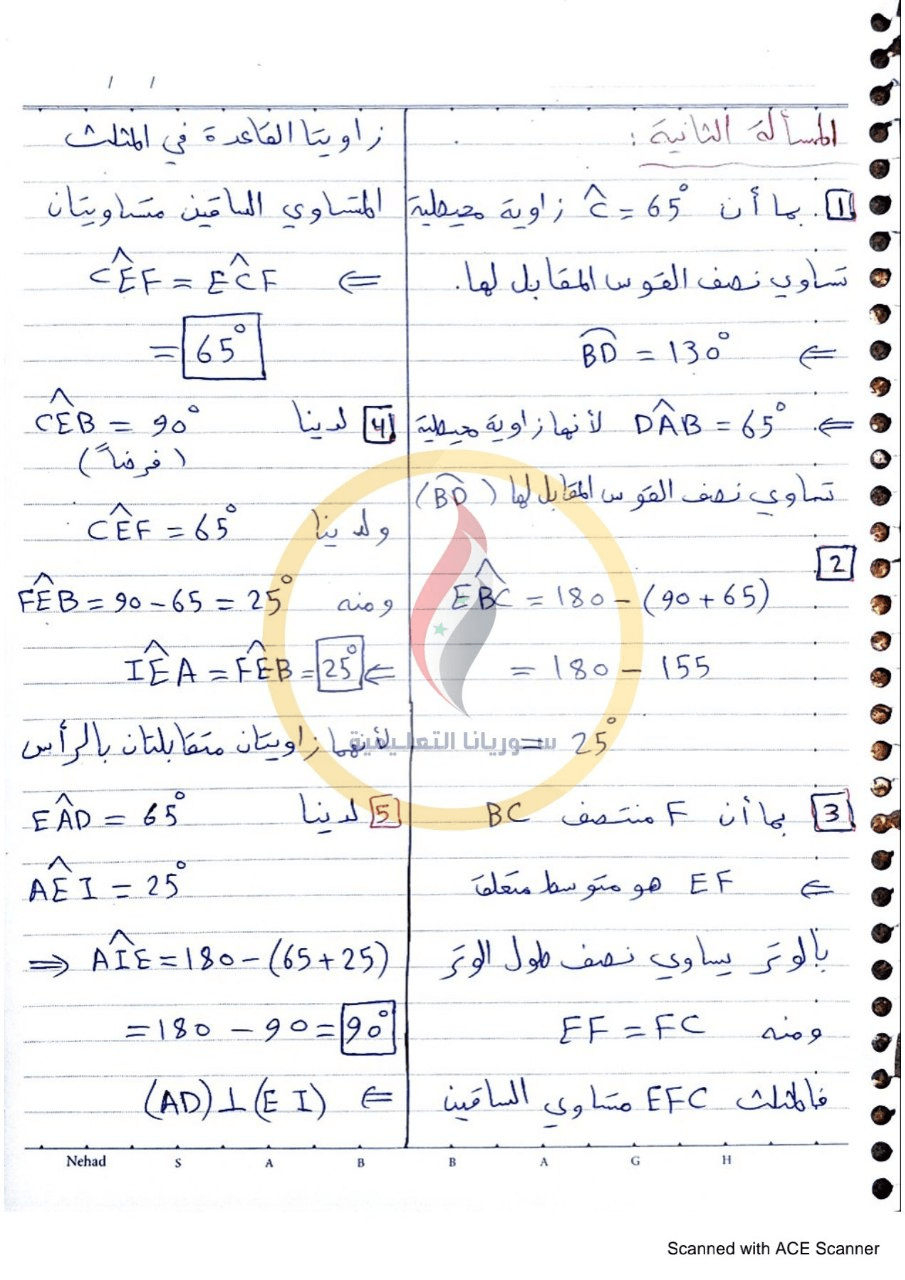 / /
المسألة الثانية :
1. بما أن Ĉ = 65° زاوية محيطية
تساوي نصف القوس المقابل لها.
⇐ B͡D = 130°
⇐ DÂB = 65° لأنها زاوية محيطية
تساوي نصف القوس المقابل لها (B͡D)
2
EB̂C = 180 - (90 + 65)
= 180 - 155
= 25°
3 بما أن F منتصف BC
⇐ EF هو متوسط متعلق
بالوتر يساوي نصف طول الوتر
ومنه EF = FC
فالمثلث EFC متساوي الساقين
زاويتا القاعدة في المثلث
المتساوي الساقين متساويتان
⇐ CÊF = EĈF
= 65°
4 لدينا CÊB = 90°
(فرضاً)
ولدينا CÊF = 65°
ومنه FÊB = 90 - 65 = 25°
⇐ IÊA = FÊB = 25°
لأنهما زاويتان متقابلتان بالرأس
5 لدينا EÂD = 65°
AÊI = 25°
⇒ AÎE = 180 - (65 + 25)
= 180 - 90 = 90°
⇐ (AD) ⊥ (EI)
سوريانا التعليمية
Nehad S A B B A G H
Scanned with ACE Scanner